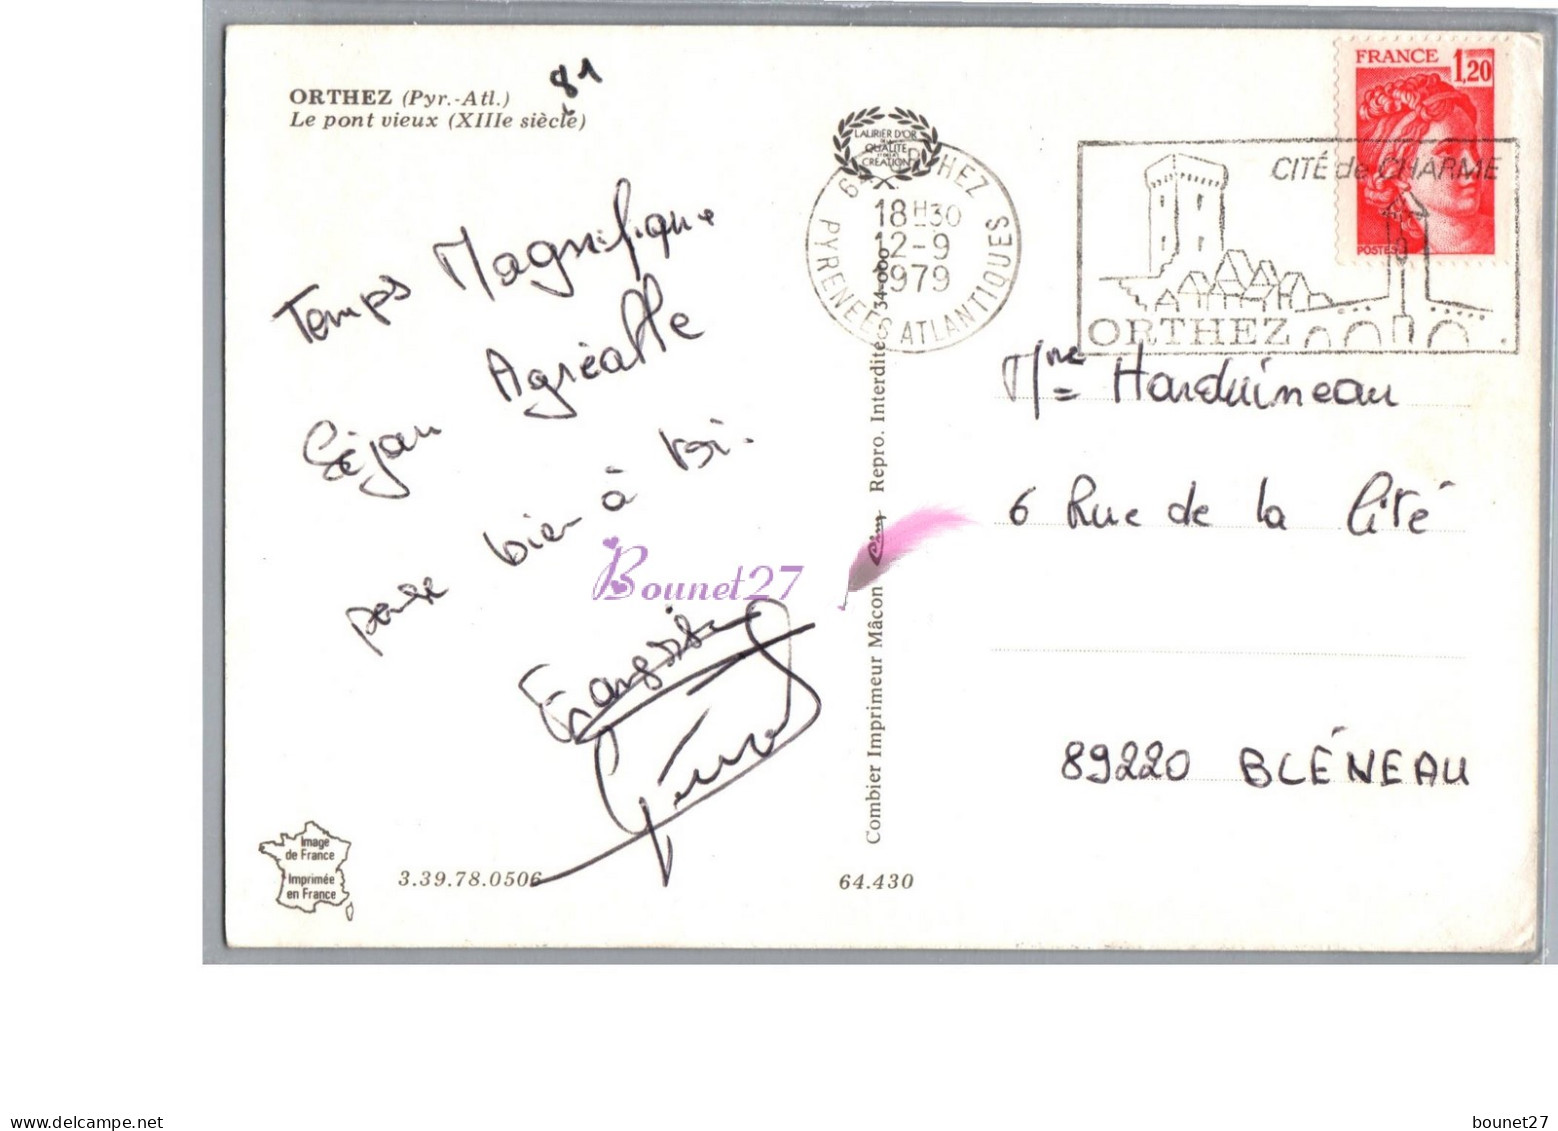 ORTHEZ (Pyr.-Atl.)
Le pont vieux (XIIIe siècle)
81
Temps Magnifique
Séjour Agréable
pense bien à toi.
Françoise
Image
de France
Imprimée
en France
3.39.78.0506
64.430
Combier Imprimeur Mâcon Cim Repro. Interdite 34-000
LAURIER D'OR
DE LA
QUALITÉ
CRÉATION
64 ORTHEZ
18H30
12-9
1979
PYRENEES ATLANTIQUES
CITÉ de CHARME
ORTHEZ
FRANCE 1,20
POSTES
Mme Harduineau
6 Rue de la Cité
89220 BLÉNEAU
Bounet27
delcampe.net
bounet27